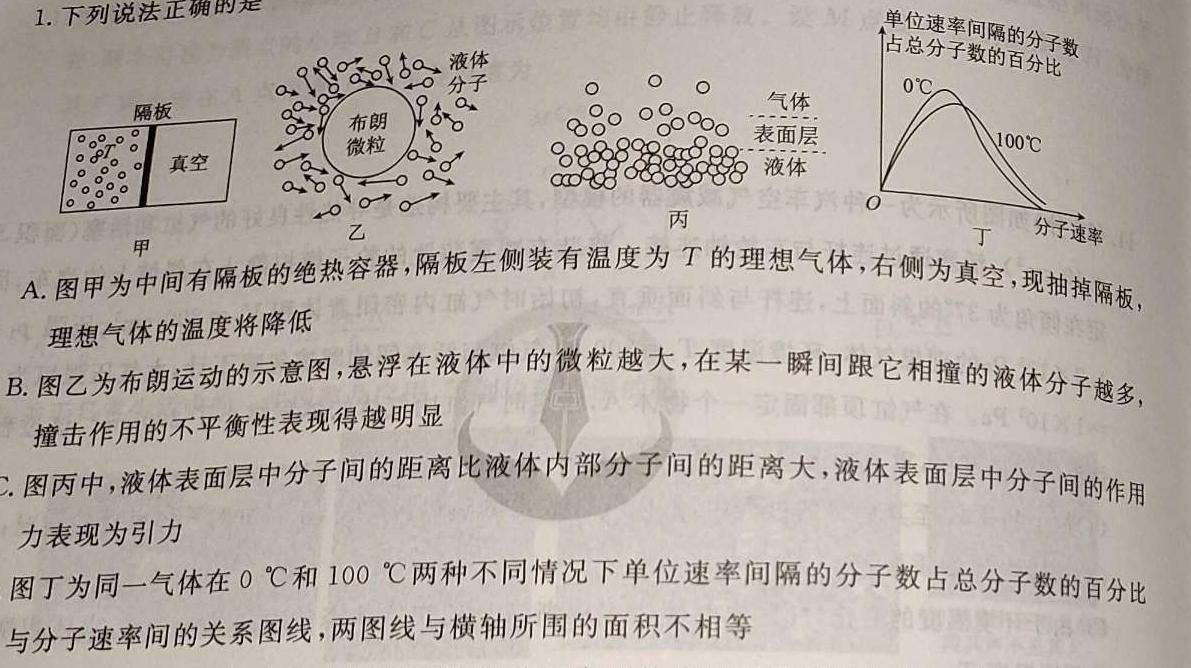 1. 下列说法正确的是
隔板
T
真空
甲
液体
分子
布朗
微粒
乙
气体
表面层
液体
丙
单位速率间隔的分子数
占总分子数的百分比
0℃
100℃
O
分子速率
丁
A. 图甲为中间有隔板的绝热容器,隔板左侧装有温度为 T 的理想气体,右侧为真空,现抽掉隔板,
理想气体的温度将降低
B. 图乙为布朗运动的示意图,悬浮在液体中的微粒越大,在某一瞬间跟它相撞的液体分子越多,
撞击作用的不平衡性表现得越明显
C. 图丙中,液体表面层中分子间的距离比液体内部分子间的距离大,液体表面层中分子间的作用
力表现为引力
图丁为同一气体在 0 ℃和 100 ℃两种不同情况下单位速率间隔的分子数占总分子数的百分比
与分子速率间的关系图线,两图线与横轴所围的面积不相等